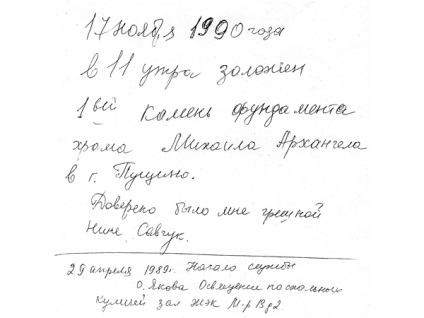 17 ноября 1990 года
в 11 утра заложен
1вый камень фундамента
храма Михаила Архангела
в г. Пущино.
Доверено было мне грешной
Нине Савчук.
29 апреля 1989г. Начало службы
О. Якова Освещение
зал ЖЭК М-р В д2